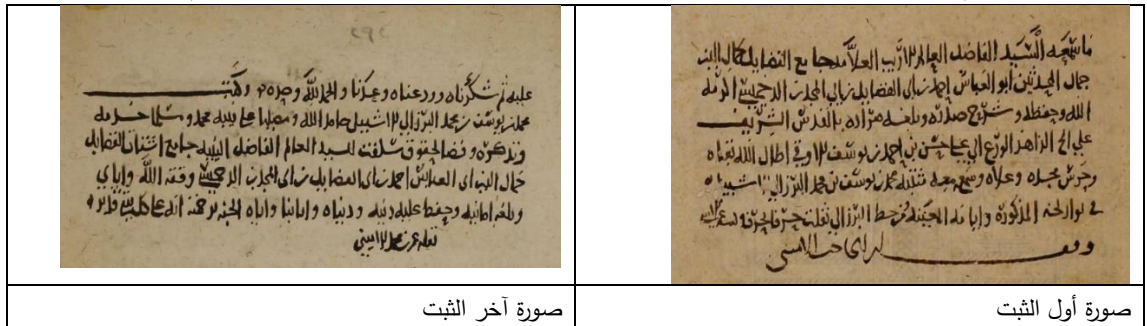 ما سمعه السيد الفاضل العالم الاريب العلامه جامع الفضايل كمال الدين
جمال المحدثين ابو العباس احمد بن ابي الفضايل بن ابي المجد بن الدخميسي الرمه
الله وحفظه وشرح صدره وبلغه مراده بالقدس الشريف
علي الزاهد الورع ابي علي حسن بن احمد بن يوسف الاوقي اطال الله بقاه
وحرس مجده وعلاه وسمع معه مثبته محمد بن يوسف بن محمد البرزالي الاشبيلي
في تواريخه المذكوره من خط البرزالي نقلت حرفا حرفا
صورة أول الثبت
٢٩٢
عليه ثم شكرناه وودعناه وعدنا والحمد لله وحده وكتب
محمد بن يوسف بن محمد البرزالي الاشبيلي حامدا لله ومصليا علي نبيه محمد ومسلما خدمه
وتذكره وقضا لحقوق سلفت للسيد العالم الفاضل النبيه جامع اشتات الفضايل
جمال الدين ابي العباس احمد بن ابي الفضايل بن ابي المجد بن الدخميسي وفقه الله واياي
وبلغه امانيه وحفظ عليه دينه ودنياه واثابنا واياه الجنه برحمته انه علي كل شي قدير
نقله محمد
صورة آخر الثبت